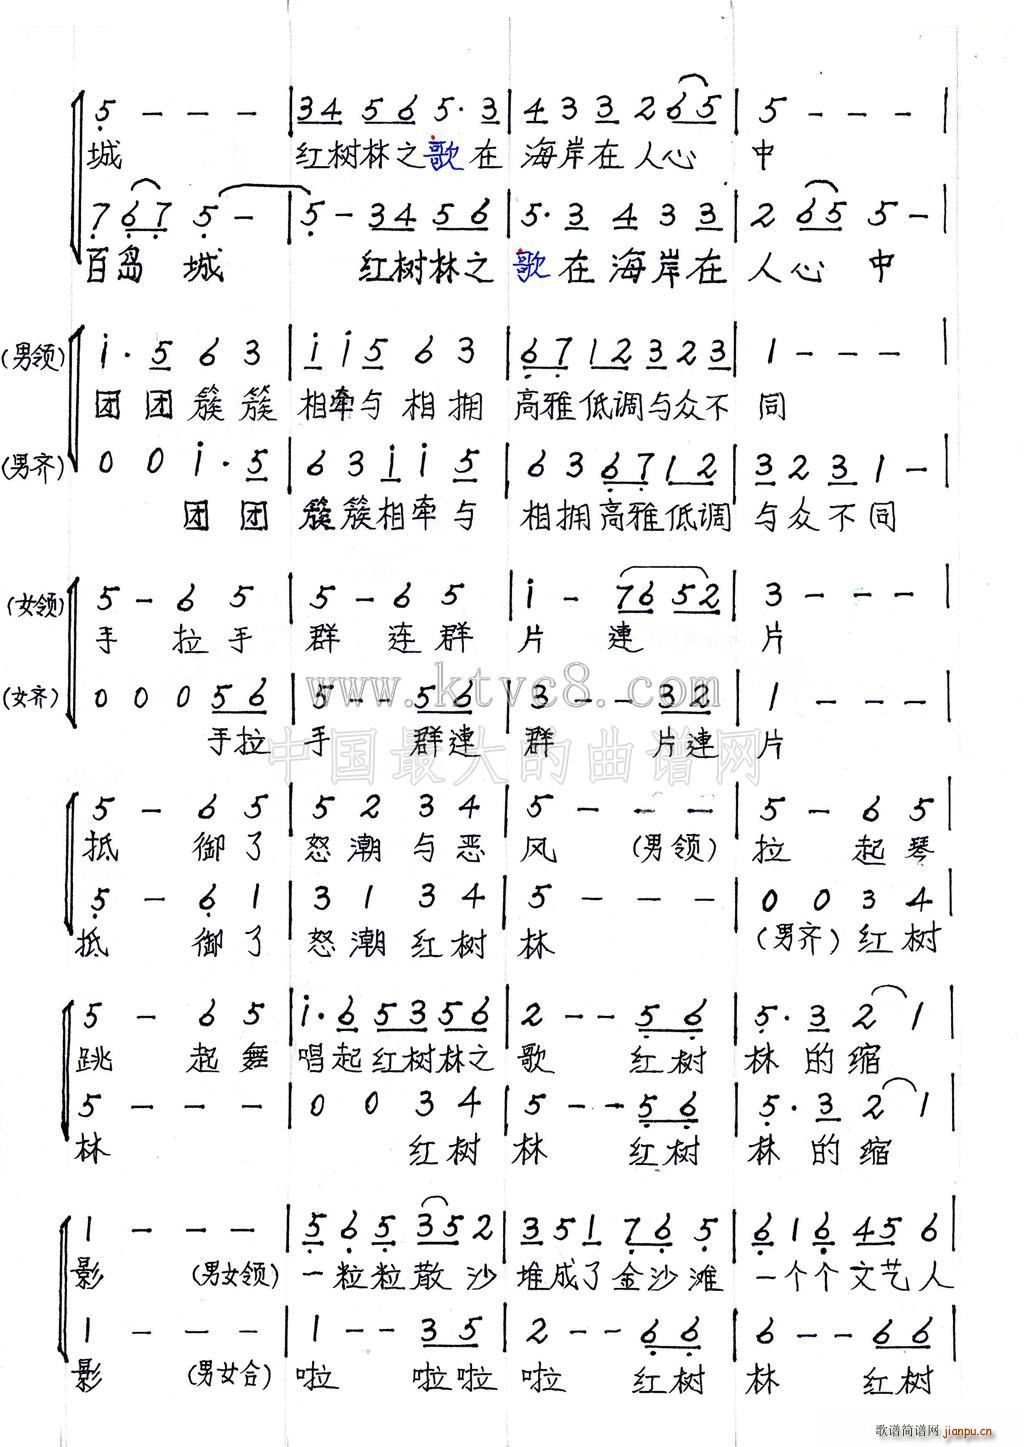 5̣ - - - | 34 56 5· 3 | 4 33 2 65 | 5 - - - |
城 红树林之歌在 海岸在人心 中
7̣ 6̣7̣ 5̣ - | 5̣ - 34 56 | 5· 3 4 33 | 2 65 5 - |
百岛 城 红树林之 歌在海岸在 人心 中
(男领) i· 5 6 3 | i i5 6 3 | 6̣7̣ 12 323 | 1 - - - |
团团簇簇 相牵与相拥 高雅低调与众不 同
(男齐) 0 0 i· 5 | 63 i i 5 | 63 6̣7̣ 12 | 323 1 - |
团团 簇簇相牵与 相拥高雅低调 与众不同
(女领) 5 - 6 5 | 5 - 6 5 | i - 76 52 | 3 - - - |
手 拉手 群 连群 片 連 片
(女齐) 0 0 0 56 | 5 - - 56 | 3 - - 32 | 1 - - - |
www.ktvc8.com
手拉 手 群連 群 片連 片
中国最大的曲谱网
5 - 6 5 | 5 2 3 4 | 5 - - - | 5 - 6 5 |
抵 御了 怒潮与恶 风 (男领) 拉 起琴
5̣ - 6̣ 1 | 3 1 3 4 | 5 - - - | 0 0 3 4 |
抵 御了 怒潮红树 林 (男齐) 红树
5 - 6 5 | i· 6 53 56 | 2 - - 5̣6̣ | 5̣· 3 2 1 |
跳 起舞 唱起红树林之 歌 红树 林的缩
5 - - - | 0 0 3 4 | 5 - - 5̣6̣ | 5̣· 3 2 1 |
林 红树 林 红树 林的缩
1 - - - | 5̣ 6̣ 5̣ 35 2 | 351 7̣ 6̣ 5̣ | 6̣1 6̣ 45 6 |
影 (男女领) 一粒粒散沙 堆成了金沙滩 一个个文艺人
1 - - - | 1 - - 35 | 2 - - 6̣6̣ | 6 - - 66 |
影 (男女合) 啦 啦啦 啦 红树 林 红树
歌谱简谱网 jianpu.cn